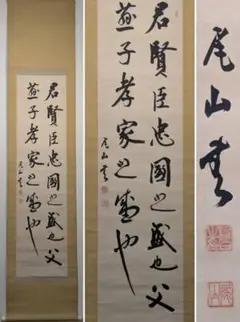 君賢臣忠國之盛也父
慈子孝家之盛也
尾山
君賢臣忠國之盛也父
慈子孝家之盛也
尾山
尾山